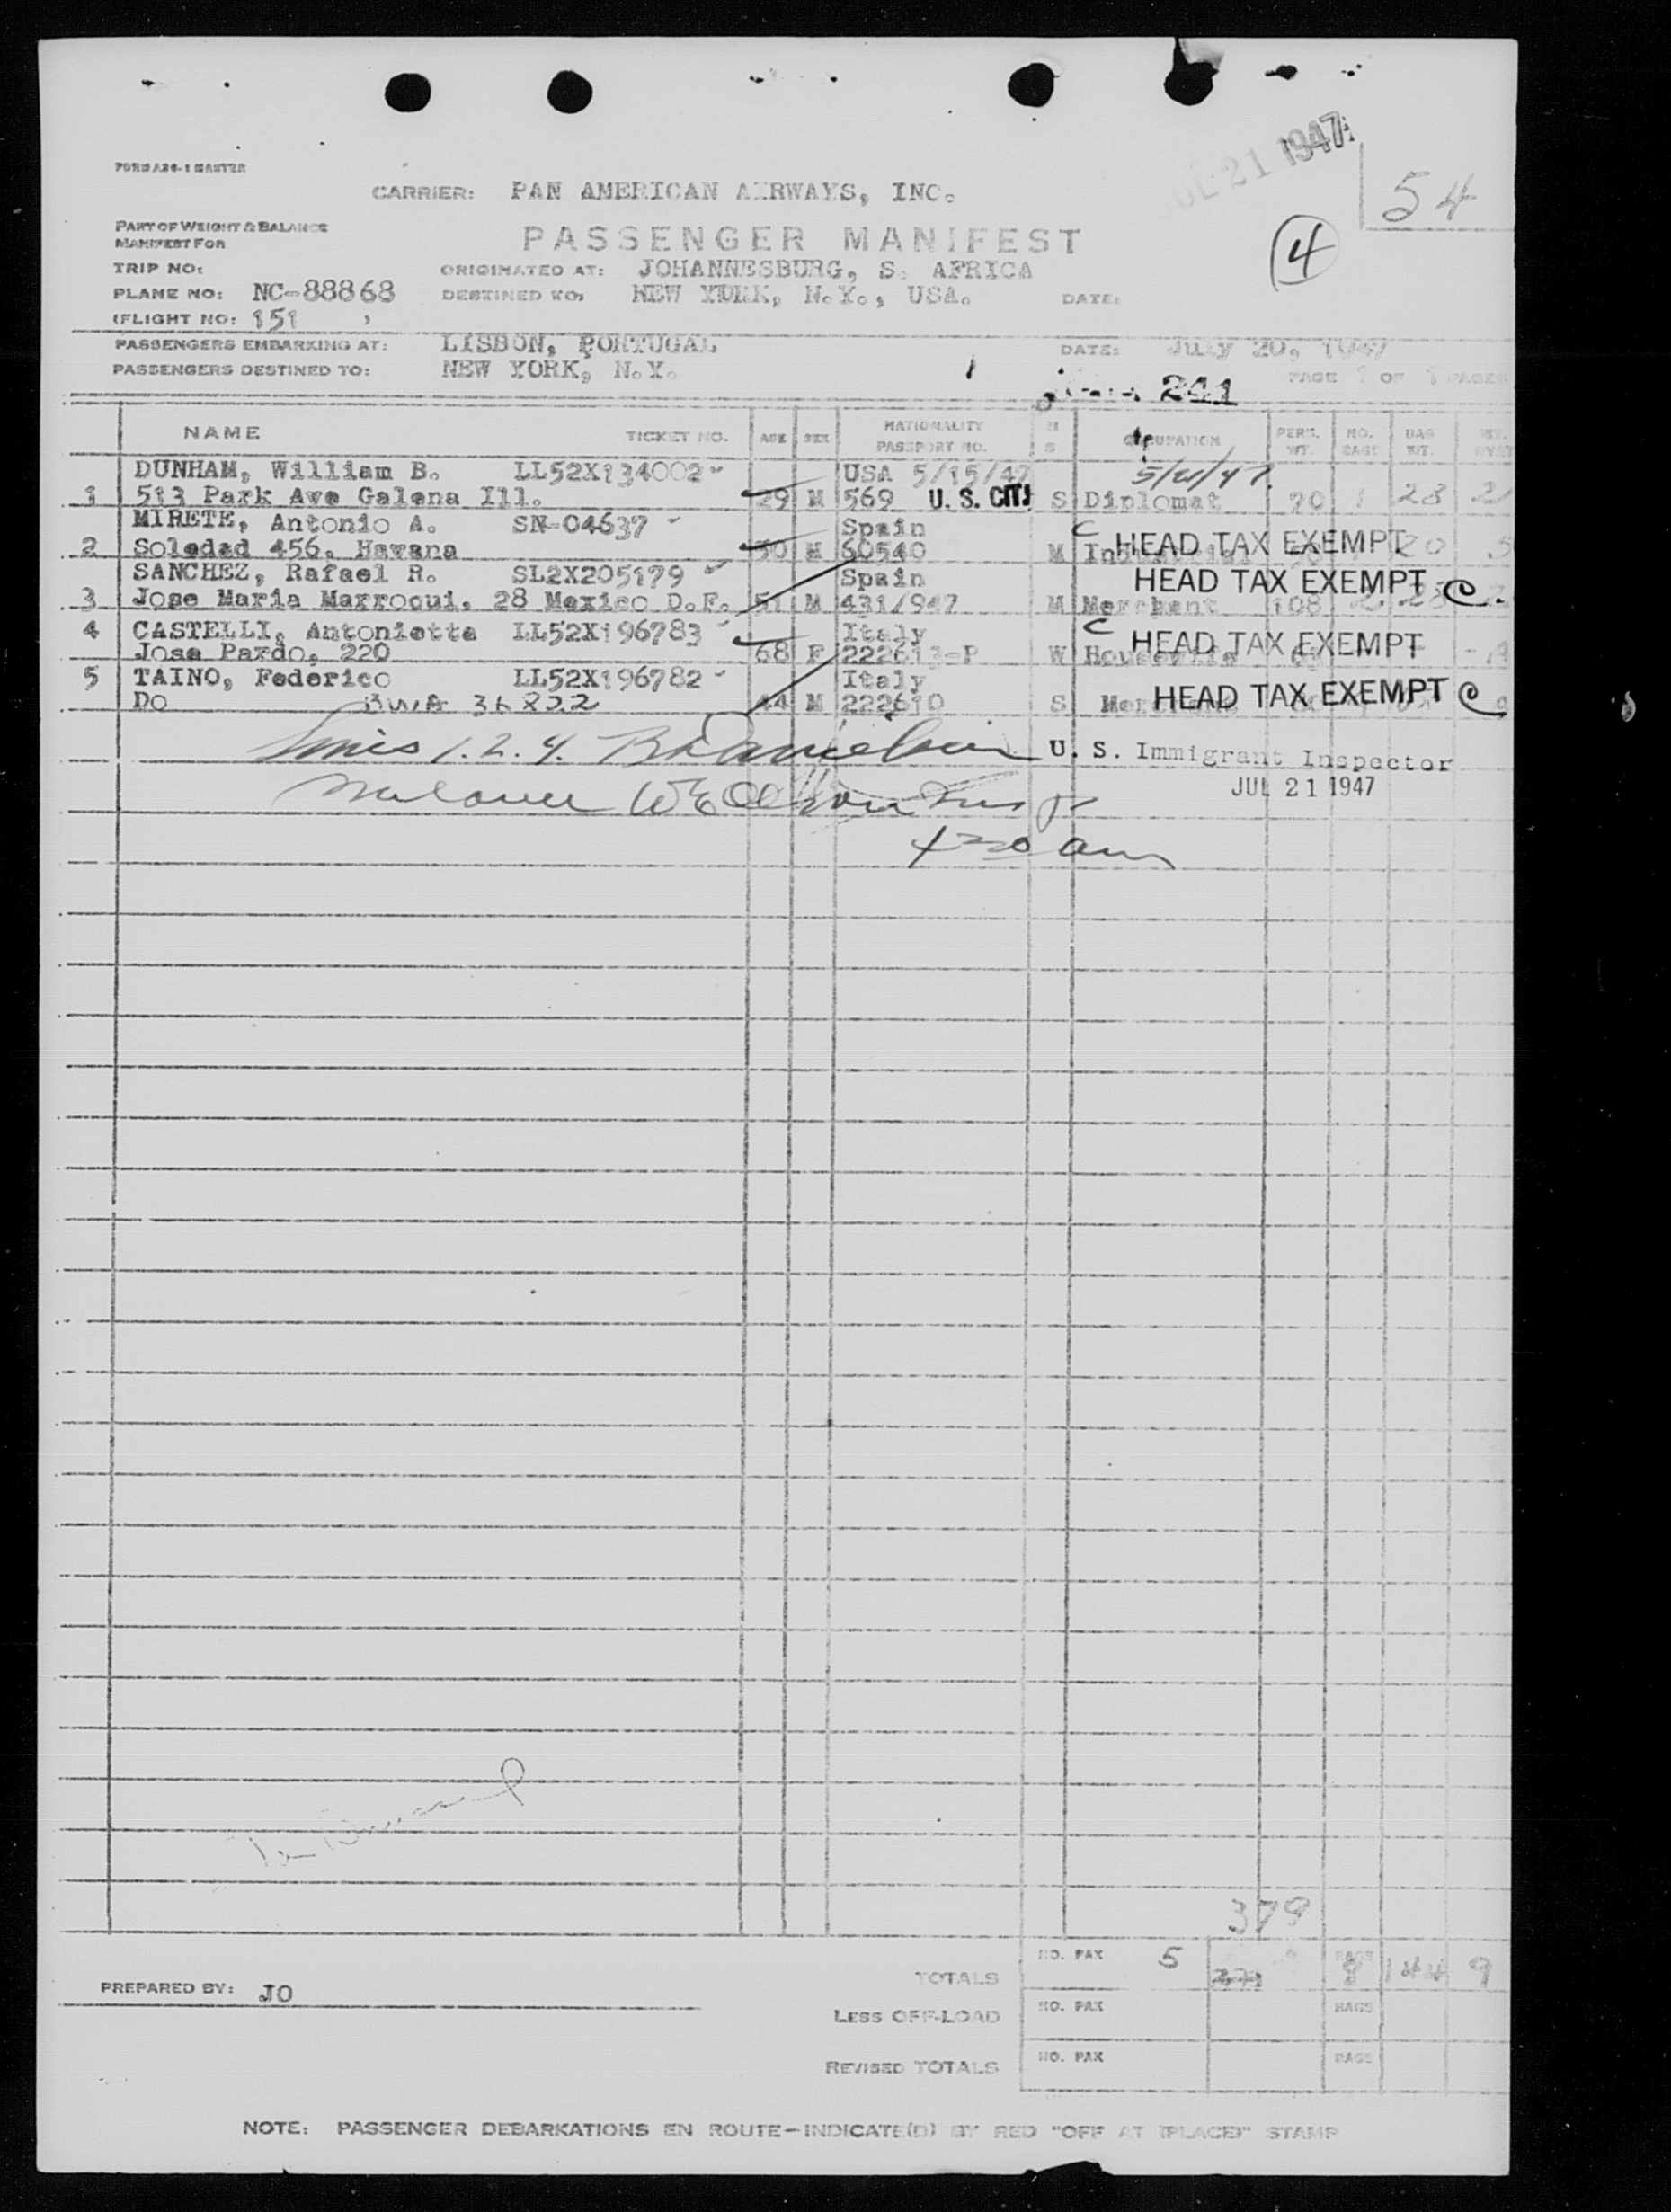 JUL 21 1947
FORM A26-1 MASTER
54
CARRIER: PAN AMERICAN AIRWAYS, INC.
PART OF WEIGHT & BALANCE
MANIFEST FOR
PASSENGER MANIFEST
4
TRIP NO:
ORIGINATED AT: JOHANNESBURG, S. AFRICA
PLANE NO: NC-88868
DESTINED TO: NEW YORK, N.Y., USA.
DATE:
(FLIGHT NO: 151 )
PASSENGERS EMBARKING AT: LISBON, PORTUGAL
DATE: July 20, 1947
PASSENGERS DESTINED TO: NEW YORK, N.Y.
PAGE 1 OF 1 PAGES
1
241
NAME TICKET NO. AGE SEX NATIONALITY PASSPORT NO. M S OCCUPATION PERS. WT. NO. BAGS BAG WT.
DUNHAM, William B. LL52X134002 USA 5/15/47
1 513 Park Ave Galena Ill. 29 M 569 U.S. CIT S Diplomat 70 1 28 21
MIRETE, Antonio A. SN-04637 Spain C HEAD TAX EXEMPT
2 Soledad 456, Havana 50 M 60540 M 20 5
SANCHEZ, Rafael R. SL2X205179 Spain HEAD TAX EXEMPT C.
3 Jose Maria Marroqui, 28 Mexico D.F. 51 M 431/947 M Merchant 108
4 CASTELLI, Antonietta LL52X196783 Italy C HEAD TAX EXEMPT
Jose Pardo, 220 68 F 222613-P W Housewife
5 TAINO, Federico LL52X196782 Italy HEAD TAX EXEMPT C
Do BWA 36822 44 M 222610 S
1. 2. 4. U. S. Immigrant Inspector
JUL 21 1947
am
379
TOTALS NO. PAX 5 BAGS 9 144 9
PREPARED BY: JO
LESS OFF-LOAD NO. PAX BAGS
REVISED TOTALS NO. PAX BAGS
NOTE: PASSENGER DEBARKATIONS EN ROUTE-INDICATE(D) BY RED "OFF AT (PLACE)" STAMP